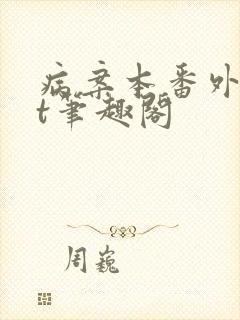 病案本番外
t笔趣阁
周巍